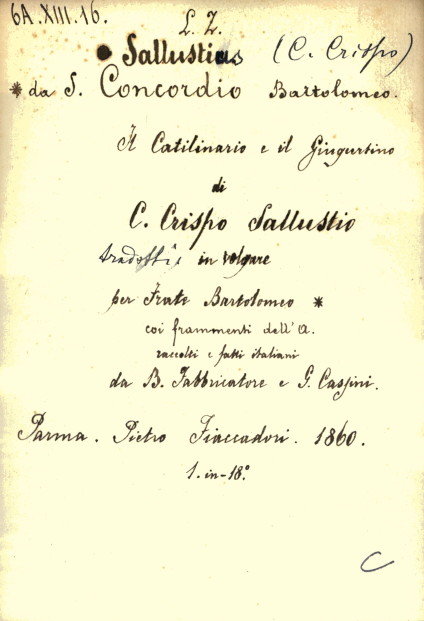 6A.XIII.16. L. Z.
Sallustius (C. Crispo)
* da S. Concordio Bartolomeo.
Il Catilinario e il Giugurtino
di
C. Crispo Sallustio
tradotti in volgare
per Frate Bartolomeo *
coi frammenti dell'A.
raccolti e fatti italiani
da B. Fabbricatore e G. Cassini.
Parma. Pietro Fiaccadori. 1860.
1. in-18°
C